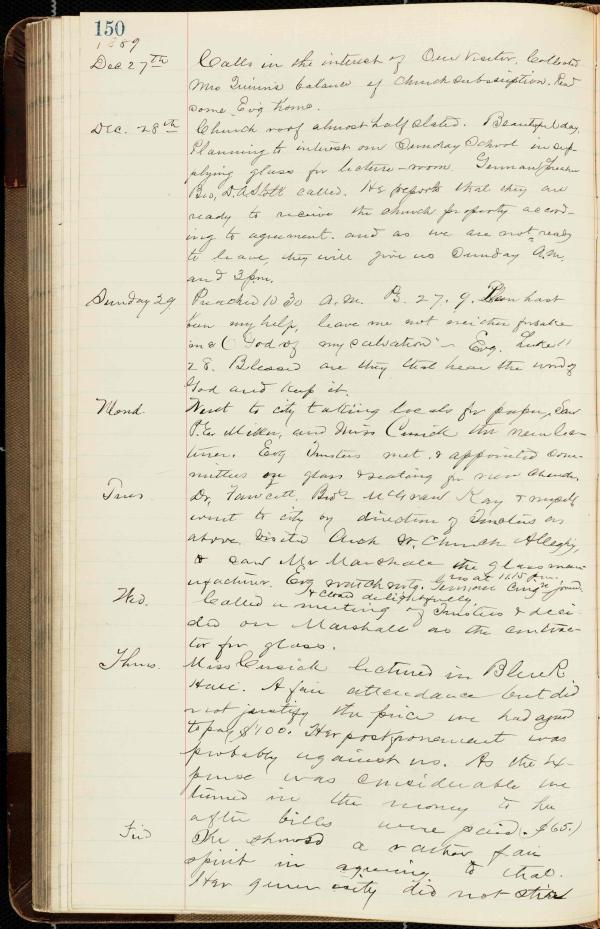 150
1889
Dec 27th Calls in the interest of Our Visitor. Collected
Mrs Quinn's balance of church subscription. Read
some. Evg home.
Dec. 28th Church roof almost half slated. Beautiful day.
Planning to interest our Sunday School in sup-
plying glass for lecture-room. German Preacher
Bro, D. A Stoll called. He reports that they are
ready to receive the church property accord-
ing to agreement. and as we are not ready
to leave, they will give us Sunday A.M.
and 3 pm.
Sunday 29 Preached 10 30 A.M. Ps. 27. 9. Thou hast
been my help, leave me not neither forsake
me O God of my salvation" - Evg. Luke 11
28. Blessed are they that hear the word of
God and keep it.
Mond. Went to city taking locals for paper. Saw
and Miss Cusick the new lec-
turer. Evg Trustees met. & appointed com-
mittees on glass & seating for new church.
Tues Dr, Fawcett, Bros McGraw Kay & myself
went to city by direction of Trustees as
above. Visited Arch St. Church Allegheny,
& saw Mr Marshall the glass man-
ufacturer. Evg watch mtg. German Cong'n joined.
& closed delightfully
Wed. Called a meeting of Trustees & deci-
ded on Marshall as the contrac-
tor for glass.
Thurs Miss Cusick lectured in
Hall. A fair attendance but did
not justify the price we had agreed
to pay $100. Her postponement was
probably against us. As the ex-
pense was considerable we
turned in the money to her
after bills were paid. ($65.)
Fri She showed a rather fair
spirit in agreeing to that.
Her generosity did not